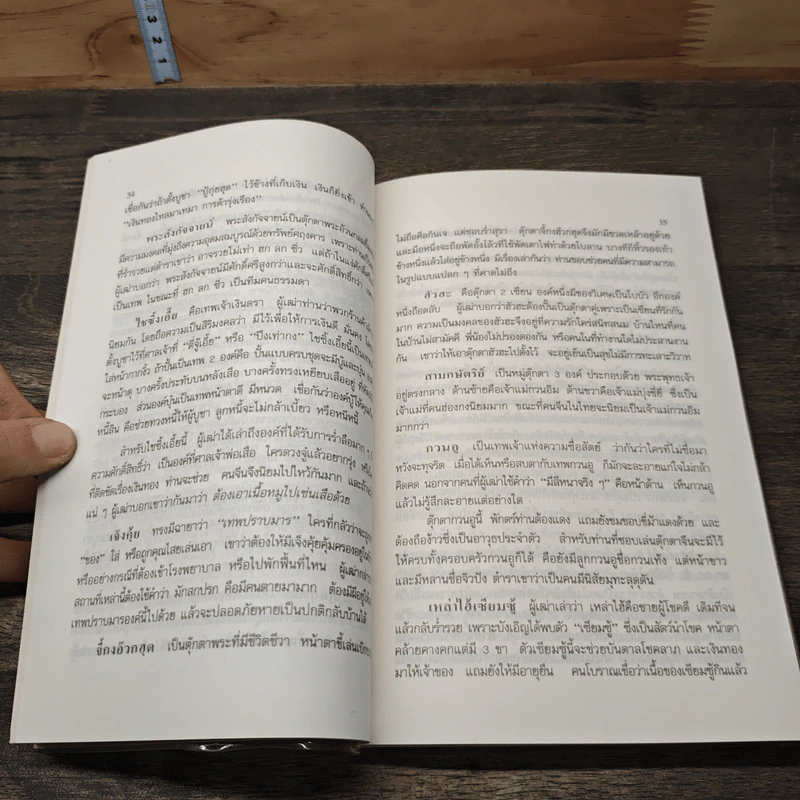 3
2
1
34
เชื่อกันว่าถ้าตั้งบูชา "ปู้กุ่ยฮุด" ไว้ข้างที่เก็บเงิน เงินก็ยิ่งเข้า
"เงินทองไหลมาเทมา การค้ารุ่งเรือง"
พระสังกัจจายน์ พระสังกัจจายน์เป็นตุ๊กตาพระถ้วน
มีความมงคลที่มุ่งถึงความอุดมสมบูรณ์ด้วยทรัพย์ศฤงคาร เพราะท่านเป็น
ที่ร่ำรวยแต่ตำราเขาว่า อาจรวยไม่เท่า ฮก ลก ซิ่ว แต่ถ้าในแง่ศักดิ์
ผู้เฒ่าบอกว่า พระสังกัจจายน์มีศักดิ์ศรีสูงกว่าและจะศักดิ์สิทธิ์กว่า
เป็นเทพ ในขณะที่ ฮก ลก ซิ่ว เป็นทีมคนธรรมดา
ไซซิ้งเอี้ย คือเทพเจ้าเงินตรา ผู้เฒ่าท่านว่าพวกร้านค้า
นิยมกัน โดยถือความเป็นสิริมงคลว่า มีไว้เพื่อให้การเงินดี มั่นคง
ตั้งบูชาไว้ที่ศาลเจ้าที่ "ตี่จู้เอี้ย" หรือ "ปึงเท่ากง" ไซซิ้งเอี้ยนี้เป็นเทพ
ใส่หน้ากากงิ้ว ถ้าปั้นเป็นเทพ 2 องค์คือ ปั้นแบบครบชุดจะมีบู๊และบุ๋น
จะหน้าดุ บางครั้งประทับบนหลังเสือ บางครั้งทรงเหยียบเสืออยู่ ที่
กระบอง ส่วนองค์บุ๋นเป็นเทพหน้าตาดี มีหนวด เชื่อกันว่าองค์บู๊ให้คุณ
หนี้สิน คือช่วยทวงหนี้ให้ผู้บูชา ลูกหนี้จะไม่กล้าเบี้ยว หรือหนีหนี้
สำหรับไซซิ้งเอี้ยนี้ ผู้เฒ่าได้เล่าถึงองค์ที่ได้รับการร่ำลือมาก
ความศักดิ์สิทธิ์ว่า เป็นองค์ที่ศาลเจ้าพ่อเสือ ใครดวงจู๋แล้วอยากรุ่ง
ที่ติดขัดเรื่องเงินทอง ท่านจะช่วย คนจีนจึงนิยมไปไหว้กันมาก และ
แน่ ๆ ผู้เฒ่าบอกเขาว่ากันมาว่า ต้องเอาเนื้อหมูไปเซ่นเสือด้วย
เจ็งคุ้ย ทรงมีฉายาว่า "เทพปราบมาร" ใครที่กลัวว่าจะถูก
"ของ" ใส่ หรือถูกคุณไสยเล่นเอา เขาว่าต้องให้มีเจ็งคุ้ยคุ้มครองอยู่ใน
หรืออย่างกรณีที่ต้องเข้าโรงพยาบาล หรือไปพักพื้นที่ไหน ผู้เฒ่ากล่าว
สถานที่เหล่านี้ต้องใช้คำว่า มักสกปรก คือมีคนตายมามาก ต้องมีผีอยู่
เทพปราบมารองค์นี้ไปด้วย แล้วจะปลอดภัยหายเป็นปกติกลับบ้านได้
จี้กงอ๊วกฮุด เป็นตุ๊กตาพระที่มีชีวิตชีวา หน้าตาขี้เล่น
35
ไม่ถือศีลกินเจ แต่ชอบร่ำสุรา ตุ๊กตาจี้กงฮ้วกฮุดจึงมักมีขวดเหล้าอยู่ด้วย
และมือหนึ่งจะถือพัดอั้งโล้ที่ใช้พัดเตาไฟทำด้วยใบลาน บางทีก็หิ้วรองเท้า
ข้างหนึ่งแล้วใส่อยู่ข้างหนึ่ง มีเรื่องเล่ากันว่า ท่านชอบช่วยคนที่มีความสามารถ
ในรูปแบบแปลก ๆ ที่คาดไม่ถึง
ฮัวฮะ คือตุ๊กตา 2 เซียน องค์หนึ่งมีของวิเศษเป็นใบบัว อีกองค์
หนึ่งถือตลับ ผู้เฒ่าบอกว่าฮัวฮะต้องปั้นเป็นตุ๊กตาคู่เพราะเป็นเซียนที่รักกัน
มาก ความเป็นมงคลของฮัวฮะจึงอยู่ที่ความรักใคร่สนิทสนม บ้านไหนที่คน
ในบ้านไม่สามัคคี พี่น้องไม่ปรองดองกัน หรือคนในที่ทำงานใดไม่ประสานงาน
กัน เขาว่าให้เอาตุ๊กตาฮัวฮะไปตั้งไว้ จะอยู่เย็นเป็นสุขไม่มีการทะเลาะวิวาท
สามกษัตริย์ เป็นหมู่ตุ๊กตา 3 องค์ ประกอบด้วย พระพุทธเจ้า
อยู่ตรงกลาง ด้านซ้ายคือเจ้าแม่กวนอิม ด้านขวาคือเจ้าแม่บุ่งซี่ยี้ ซึ่งเป็น
เจ้าแม่ที่คนฮ่องกงนิยมมาก ขณะที่คนจีนในไทยจะนิยมเป็นเจ้าแม่กวนอิม
มากกว่า
กวนอู เป็นเทพเจ้าแห่งความซื่อสัตย์ ว่ากันว่าใครที่ไม่ซื่อมา
หวังจะทุจริต เมื่อได้เห็นหรือสบตากับเทพกวนอู ก็มักจะละอายแก่ใจไม่กล้า
คิดคด นอกจากคนที่ผู้เฒ่าใช้คำว่า "มีสีหนาจริง ๆ" คือหน้าด้าน เห็นกวนอู
แล้วไม่รู้สึกละอายแต่อย่างใด
ตุ๊กตากวนอูนี้ พักตร์ท่านต้องแดง แถมยังชมชอบขี่ม้าแดงด้วย และ
ต้องถือง้าวซึ่งเป็นอาวุธประจำตัว สำหรับท่านที่ชอบเล่นตุ๊กตาจีนจะมีไว้
ให้ครบทั้งครอบครัวกวนอูก็ได้ คือยังมีลูกกวนอูชื่อกวนเท้ง แต่หน้าขาว
และมีหลานชื่อจิวปัง ตำราเขาว่าเป็นคนมีนิสัยมุทะลุดุดัน
เหล่าไฮ้เซียมซู้ ผู้เฒ่าเล่าว่า เหล่าไฮ้คือชายผู้โชคดี เดิมทีจน
แล้วกลับร่ำรวย เพราะบังเอิญได้พบตัว "เซียมซู้" ซึ่งเป็นสัตว์นำโชค หน้าตา
คล้ายคางคกแต่มี 3 ขา ตัวเซียมซู้นี้จะช่วยบันดาลโชคลาภ และเงินทอง
มาให้เจ้าของ แถมยังให้มีอายุยืน คนโบราณเชื่อว่าเนื้อของเซียมซู้กินแล้ว